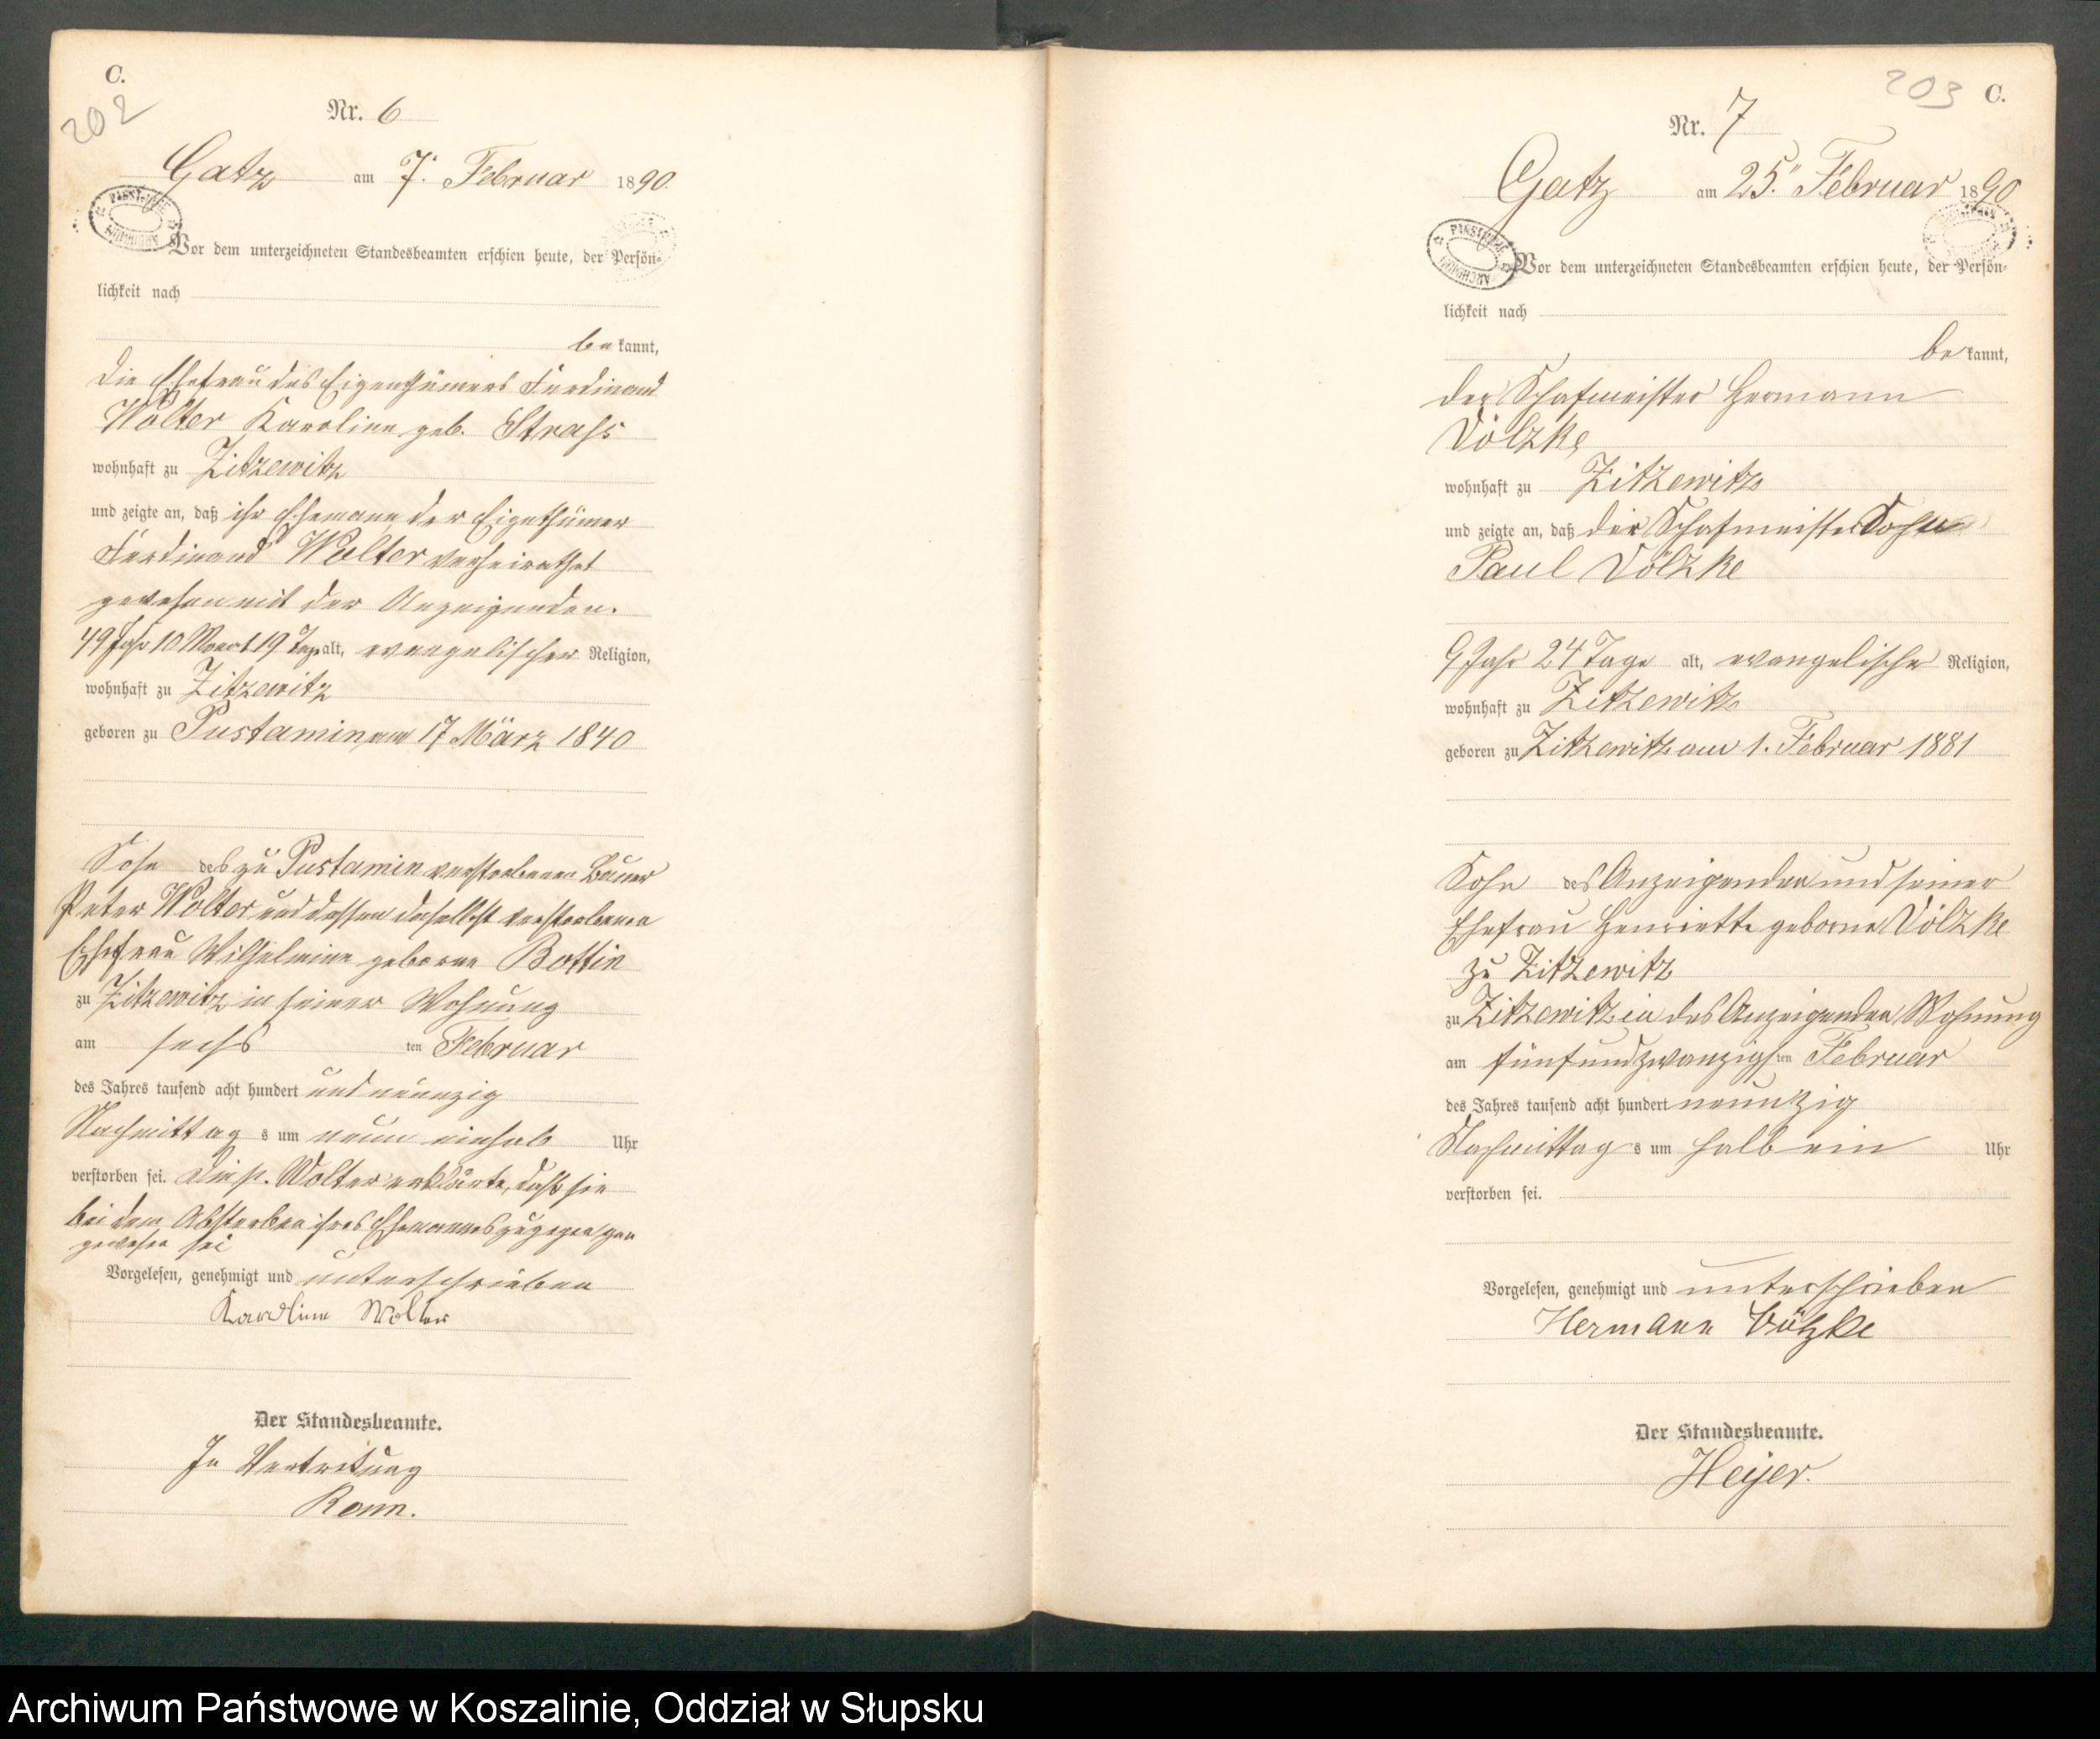 C.
202
Nr. 6
Gatz am 7. Februar 1890.
Vor dem unterzeichneten Standesbeamten erschien heute, der Persön-
lichkeit nach
be kannt,
die Ehefrau des Eigenthümers Ferdinand
Wolter Karoline geb. Strahs
wohnhaft zu Zitzewitz
und zeigte an, daß ihr Ehemann der Eigenthümer
Ferdinand Wolter verheirathet
gewesen mit der Anzeigenden.
49 Jahr 10 Monat 19 Tage alt, evangelischer Religion,
wohnhaft zu Zitzewitz
geboren zu Pustamin am 17 März 1840
Sohn des zu Pustamin verstorbenen Bauer
Peter Wolter und dessen daselbst verstorbenen
Ehefrau Wilhelmine geborne Bottin
zu Zitzewitz in seiner Wohnung
am sechs ten Februar
des Jahres tausend acht hundert und neunzig
Nachmittag s um neun einhalb Uhr
verstorben sei. Die p. Wolter erklärte, daß sie
bei dem Absterben ihres Ehemannes zugegen
gewesen sei
Vorgelesen, genehmigt und unterschrieben
Karoline Wolter
Der Standesbeamte.
In Vertretung
203 C.
Nr. 7
Gatz am 25. Februar 1890
Vor dem unterzeichneten Standesbeamten erschien heute, der Persön-
lichkeit nach
be kannt,
der Schafmeister Hermann
Völzke
wohnhaft zu Zitzewitz
und zeigte an, daß der Schafmeister Sohn
Paul Völzke
9 Jahr 24 Tage alt, evangelischer Religion,
wohnhaft zu Zitzewitz
geboren zu Zitzewitz am 1. Februar 1881
Sohn des Anzeigenden und seiner
Ehefrau Henriette geborne Völzke
zu Zitzewitz
zu Zitzewitz in des Anzeigenden Wohnung
am fünfundzwanzigs ten Februar
des Jahres tausend acht hundert neunzig
Nachmittag s um halb ein Uhr
verstorben sei.
Vorgelesen, genehmigt und unterschrieben
Hermann Völzke
Der Standesbeamte.
Heyer.
Archiwum Państwowe w Koszalinie, Oddział w Słupsku